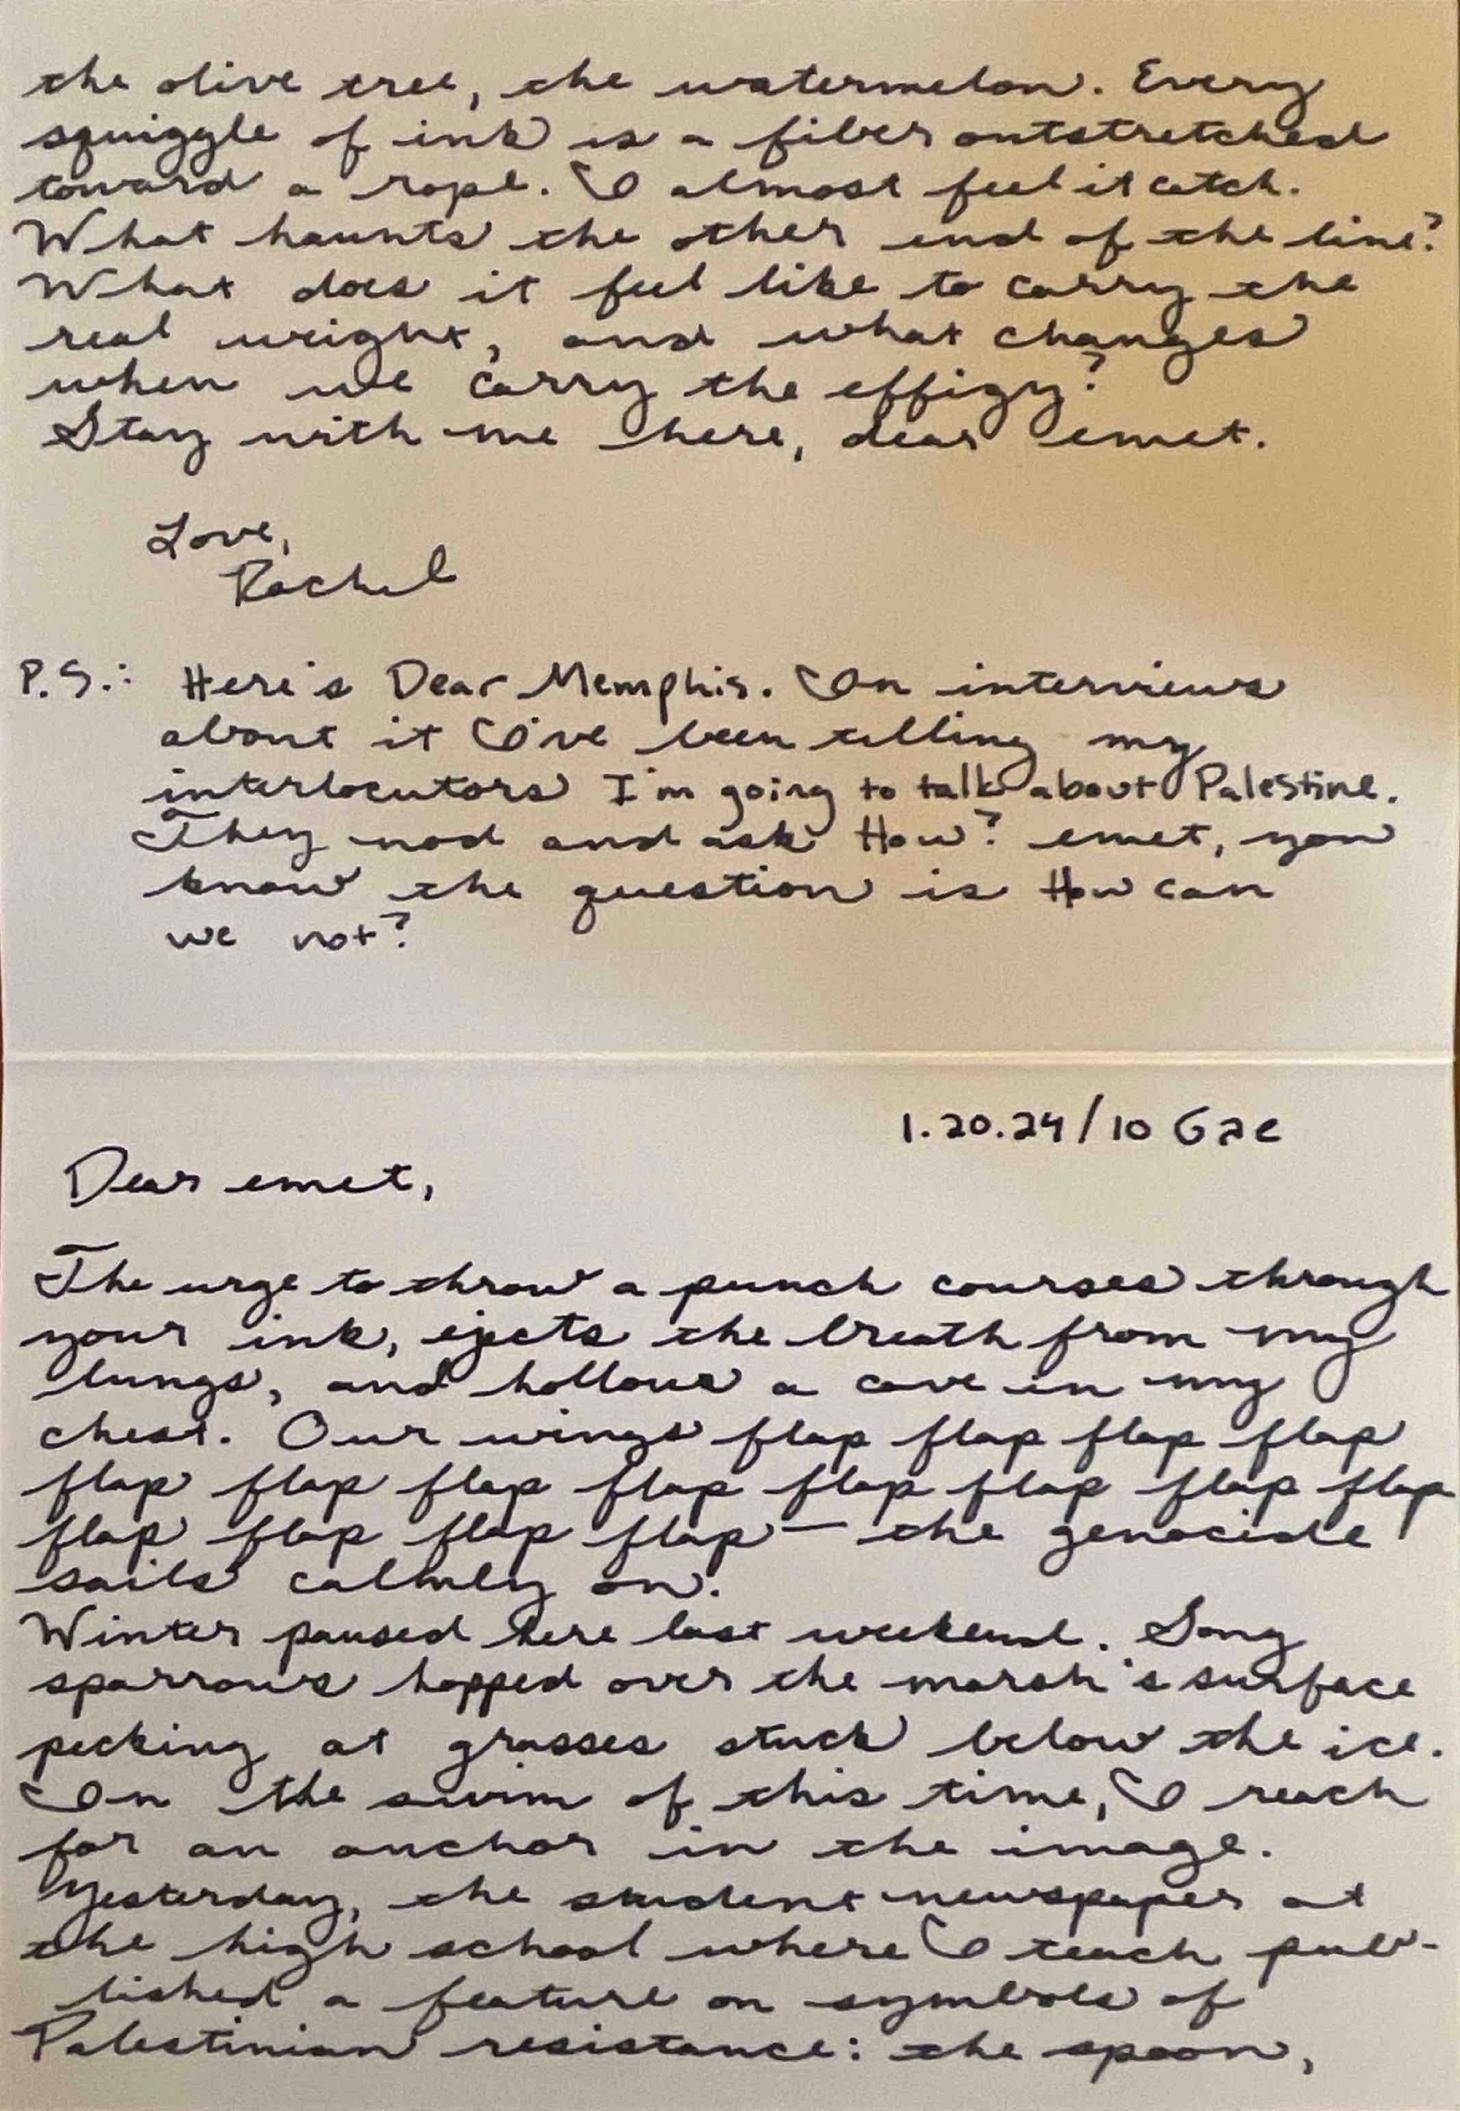 the olive tree, the watermelon. Every
squiggle of ink is a fiber outstretched
toward a rope. I almost feel it catch.
What haunts the other end of the line?
What does it feel like to carry the
real weight, and what changes
when we carry the effigy?
Stay with me here, dear emet.
Love,
Rachel
P.S.: Here's Dear Memphis. In interviews
about it I've been telling my
interlocutors I'm going to talk about Palestine.
They nod and ask How? emet, you
know the question is How can
we not?
1.20.24/10 Gae
Dear emet,
The urge to throw a punch courses through
your ink, ejects the breath from my
lungs, and hollows a cave in my
chest. Our wings flap flap flap flap
flap flap flap flap flap flap flap flap
flap flap flap flap — the genocide
sails calmly on.
Winter paused here last weekend. Song
sparrows hopped over the marsh's surface
pecking at grasses stuck below the ice.
In the swim of this time, I reach
for an anchor in the image.
Yesterday, the student newspaper at
the high school where I teach pub-
lished a feature on symbols of
Palestinian resistance: the spoon,